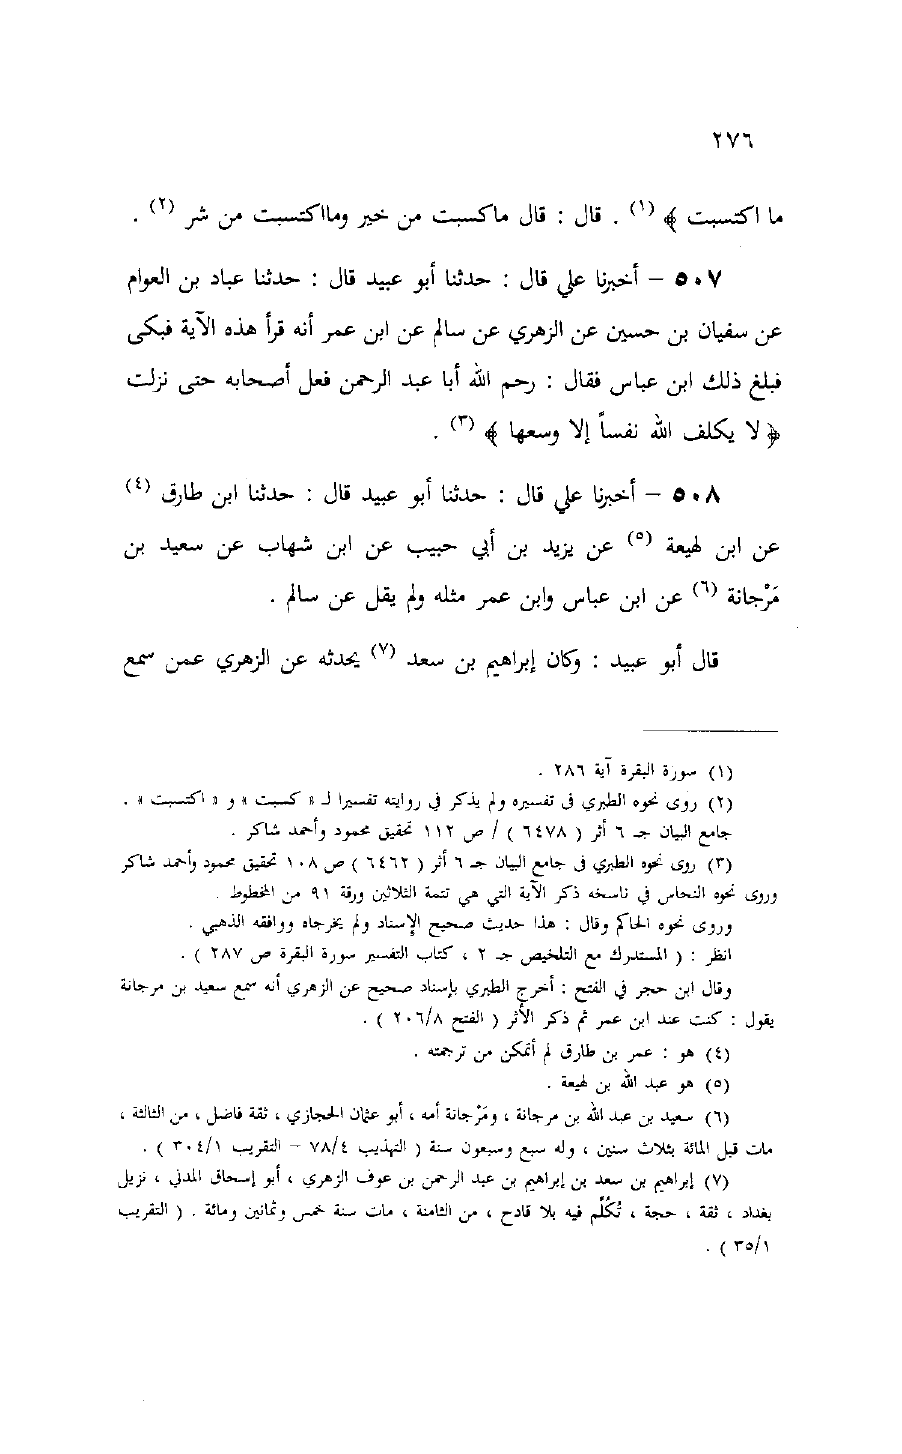 ٢٧٦
ما اكتسبت ﴾ (١) . قال : قال ماكسبت من خير ومااكتسبت من شر (٢) .
٥٠٧ – أخبرنا علي قال : حدثنا أبو عبيد قال : حدثنا عباد بن العوام
عن سفيان بن حسين عن الزهري عن سالم عن ابن عمر أنه قرأ هذه الآية فبكى
فبلغ ذلك ابن عباس فقال : رحم الله أبا عبد الرحمن فعل أصحابه حتى نزلت
﴿ لا يكلف الله نفساً إلا وسعها ﴾ (٣) .
٥٠٨ – أخبرنا علي قال : حدثنا أبو عبيد قال : حدثنا ابن طارق (٤)
عن ابن لهيعة (٥) عن يزيد بن أبي حبيب عن ابن شهاب عن سعيد بن
مَرْجانة (٦) عن ابن عباس وابن عمر مثله ولم يقل عن سالم .
قال أبو عبيد : وكان إبراهيم بن سعد (٧) يحدثه عن الزهري عمن سمع
(١) سورة البقرة آية ٢٨٦ .
(٢) روى نحوه الطبري في تفسيره ولم يذكر في روايته تفسيرا لـ « كسبت » و « اكتسبت » .
جامع البيان جـ ٦ أثر ( ٦٤٧٨ ) / ص ١١٢ تحقيق محمود وأحمد شاكر .
(٣) روى نحوه الطبري في جامع البيان جـ ٦ أثر ( ٦٤٦٢ ) ص ١٠٨ تحقيق محمود وأحمد شاكر
وروى نحوه النحاس في ناسخه ذكر الآية التي هي تتمة الثلاثين ورقة ٩١ من المخطوط .
وروى نحوه الحاكم وقال : هذا حديث صحيح الإسناد ولم يخرجاه ووافقه الذهبي .
انظر : ( المستدرك مع التلخيص جـ ٢ ، كتاب التفسير سورة البقرة ص ٢٨٧ ) .
وقال ابن حجر في الفتح : أخرج الطبري بإسناد صحيح عن الزهري أنه سمع سعيد بن مرجانة
يقول : كنت عند ابن عمر ثم ذكر الأثر ( الفتح ٢٠٦/٨ ) .
(٤) هو : عمر بن طارق لم أتمكن من ترجمته .
(٥) هو عبد الله بن لهيعة .
(٦) سعيد بن عبد الله بن مرجانة ، ومَرْجانة أمه ، أبو عثمان الحجازي ، ثقة فاضل ، من الثالثة ،
مات قبل المائة بثلاث سنين ، وله سبع وسبعون سنة ( التهذيب ٧٨/٤ – التقريب ٣٠٤/١ ) .
(٧) إبراهيم بن سعد بن إبراهيم بن عبد الرحمن بن عوف الزهري ، أبو إسحاق المدني ، نزيل
بغداد ، ثقة ، حجة ، تُكُلِّم فيه بلا قادح ، من الثامنة ، مات سنة خمس وثمانين ومائة . ( التقريب
٣٥/١ ) .